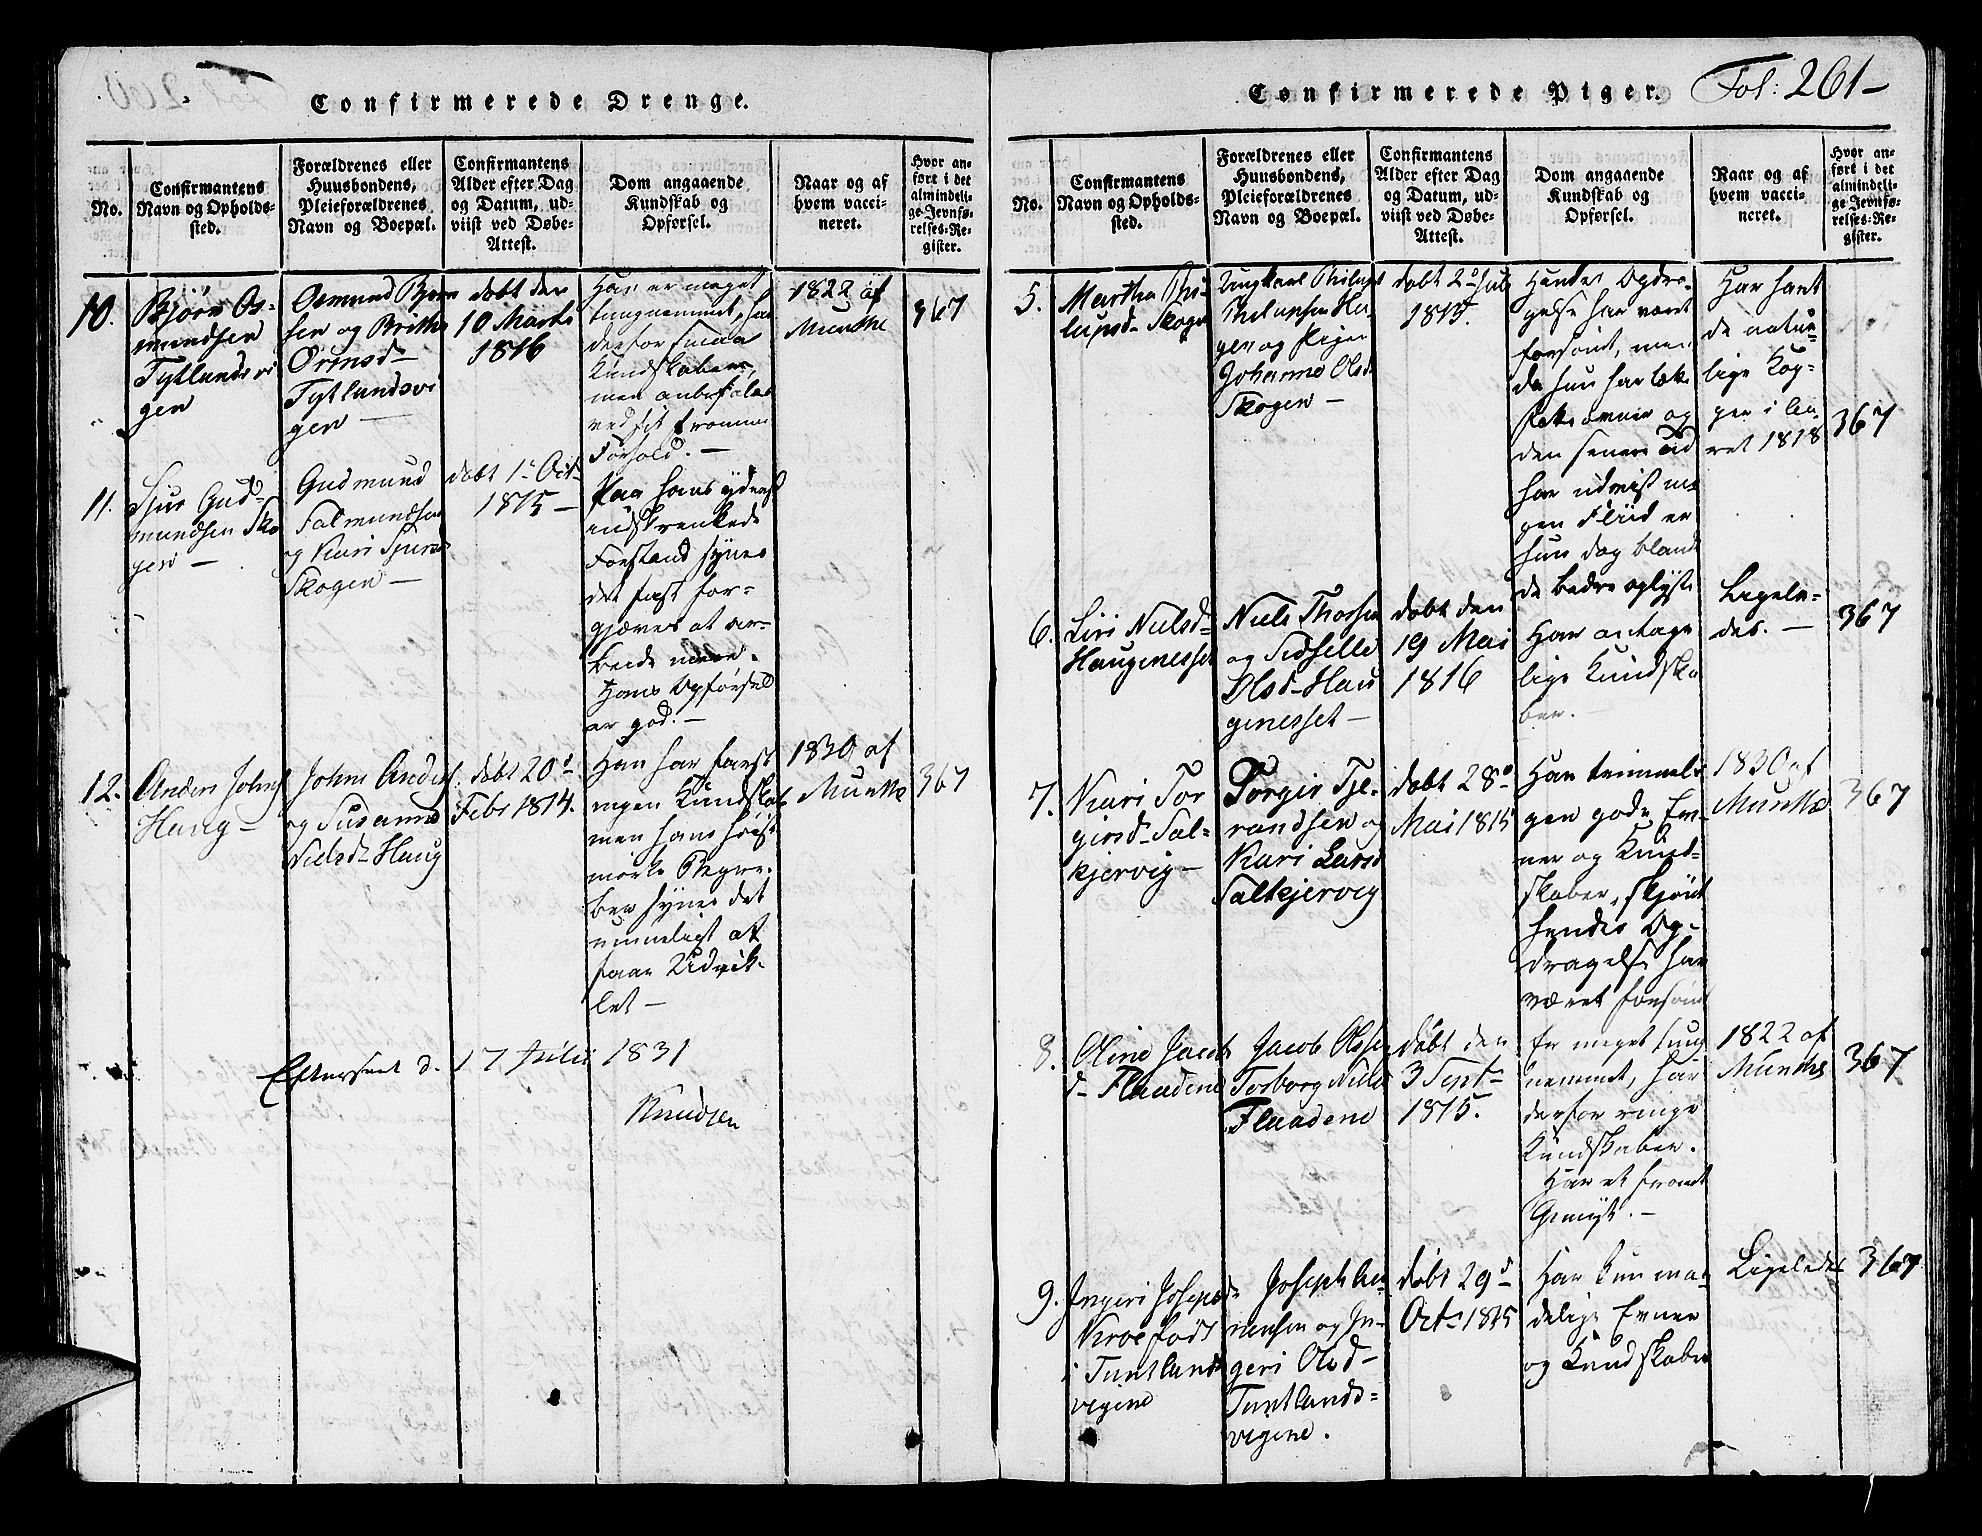 Confirmerede Drenge.
No.
Confirmantens
Navn og Opholds-
sted.
Forældrenes eller
Huusbondens,
Pleieforældrenes
Navn og Boepæl.
Confirmantens
Alder efter Dag
og Datum, ud-
viist ved Døbe-
Attest.
Dom angaaende
Kundskab og
Opførsel.
Naar og af
hvem vacci-
neret.
Hvor an-
ført i det
almindeli-
ge Jevnfø-
relses-Re-
gister.
10.
Bjørn Os-
mundsen
Tytlandsvi
gen
Osmund Bjørn
sen og Britha
Ormsd-
Tytlandsvi
gen —
døbt den
10 Marts
1816
Han er meget
tungnemmet, har
derfor smaa
Kundskaber,
men anbefales
ved sit fromme
Forhold. —
1822 af
Munthe
367
11.
Sjur Gud-
mundsen Sko
gen —
Gudmund
Salmundsen
og Kari Sjursd
Skogen —
døbt 1- Oct-
1815 —
Paa hans yderst
indskrænkede
Forstand synes
det fast for-
gjæves at ar-
beide mere.
Hans Opførsel
er god. —
12.
Anders Johns
Haug —
John Anders
og Susanna
Nielsd- Haug
døbt 20d
Febr 1814.
Han har fast
ingen Kundskab
men hans høist
mørke Begre-
ber synes det
umueligt at
faae Udvik-
let —
1830 af
Munthe
367
Efterseet d. 17 Julii 1831
Knudsen
Confirmerede Piger.
Fol: 261-
No.
Confirmantens
Navn og Opholds-
sted.
Forældrenes eller
Huusbondens,
Pleieforældrenes
Navn og Boepæl.
Confirmantens
Alder efter Dag
og Datum, ud-
viist ved Døbe-
Attest.
Dom angaaende
Kundskab og
Opførsel.
Naar og af
hvem vacci-
neret.
Hvor an-
ført i det
almindeli-
ge Jevnfø-
relses-Re-
gister.
5.
Martha Phi-
lupsd- Skogen
Ungkarl Philup
Philupsen Ha-
gen og Pigen
Johanna Olsd
Skogen —
døbt 2d Jul
1815.
Hendes Opdra-
gelse har været
forsømt, men
da hun har læk-
re Evner og
den senere Tid
har udvist me-
gen Fliid er
hun dog blandt
de bedre oplyste
Har havt
de natur-
lige Kop-
per i Aa-
ret 1818
367
6.
Siri Nielsd-
Haugenesset
Niels Thorsen
og Sidselle
Olsd- Hau
genesset —
døbt den
19 Mai
1816
Har antage
lige Kundska
ber. —
Ligele-
des. —
367
7.
Kari Tor
girsd- Sal-
kjervig —
Torgir Tje-
randsen og
Kari Larsd
Salkjervig
døbt 28d
Mai 1815
Har temmeli
gen gode Ev-
ner og Kund-
skaber, skjønt
hendes Op-
dragelse har
været forsømt
1830 af
Munthe
367
8.
Oline Jacob
d- Flaadene
Jacob Olsen
Torborg Niels
Flaadene
døbt den
3 Sept-
1815.
Er meget tung
nemmet, har
derfor ringe
Kundskaber.
Har et fromt
Gemyt. —
1822 af
Munthe
367
9.
Ingeri Josepsd-
Kroe født
i Tuntlands
vigene
Joseph
nensen og In-
geri Olsd-
Tuntlands-
vigene.
døbt 29d
Oct- 1815
Har kun maa-
delige Evner
og Kundskaber
Ligeledes
367